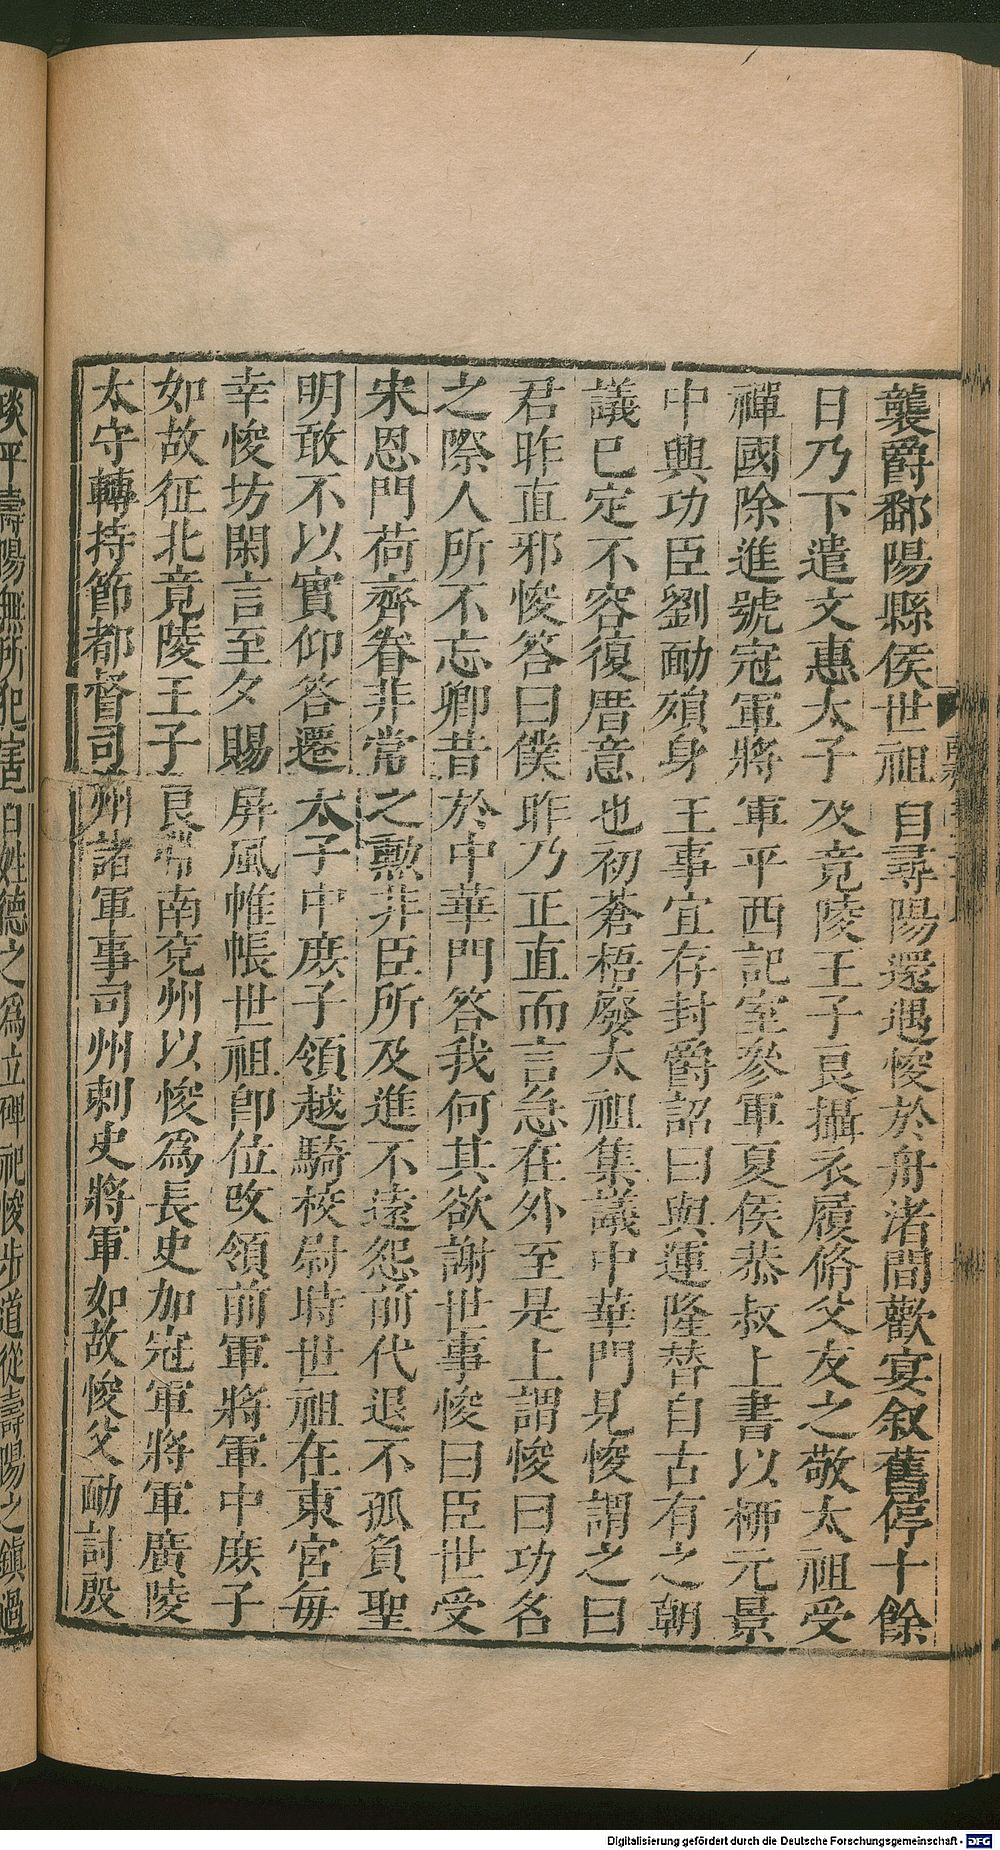 襲爵鄱陽縣侯世祖自尋陽還遇悛於舟渚間歡宴叙舊停十餘
日乃下遣文惠太子及竟陵王子良攝衣履脩父友之敬太祖受
禪國除進號冠軍將軍平西記室參軍夏侯恭叔上書以栁元景
中興功臣劉勔殞身王事宜存封爵詔曰與運隆替自古有之朝
議已定不容復厝意也初蒼梧廢太祖集議中華門見悛謂之曰
君昨直邪悛答曰僕昨乃正直而言急在外至是上謂悛曰功名
之際人所不忘卿昔於中華門答我何其欲謝世事悛曰臣世受
宋恩門荷齊眷非常之勲非臣所及進不遠怨前代退不孤負聖
明敢不以實仰答遷太子中庶子領越騎校尉時世祖在東宮毎
幸悛坊閑言至夕賜屏風帷帳世祖卽位改領前軍將軍中庶子
如故征北竟陵王子良帶南兗州以悛爲長史加冠軍將軍廣陵
太守轉持節都督司州諸軍事司州刺史將軍如故悛父勔討殷
琰平壽陽無所犯害百姓德之爲立碑祀悛步道從壽陽之鎮過
Digitalisierung gefördert durch die Deutsche Forschungsgemeinschaft - DFG